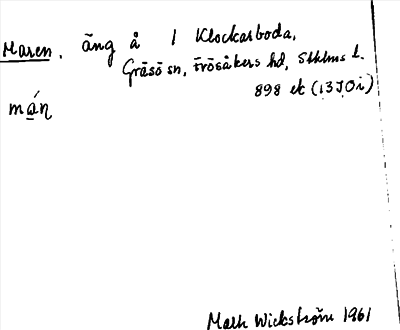 Maren, äng å 1 Klockarboda,
Gräsö sn, Frösåkers hd, Sthlms l.
898 ek (13 J 0 i)
mán
Math Wickström 1961